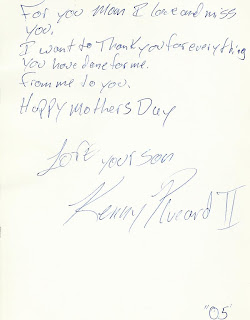 For you Mom I love and miss
you.
I want to Thank you for everything
you have done for me.
from me to you.
Happy Mothers Day
Love your son
Kenny II
"05